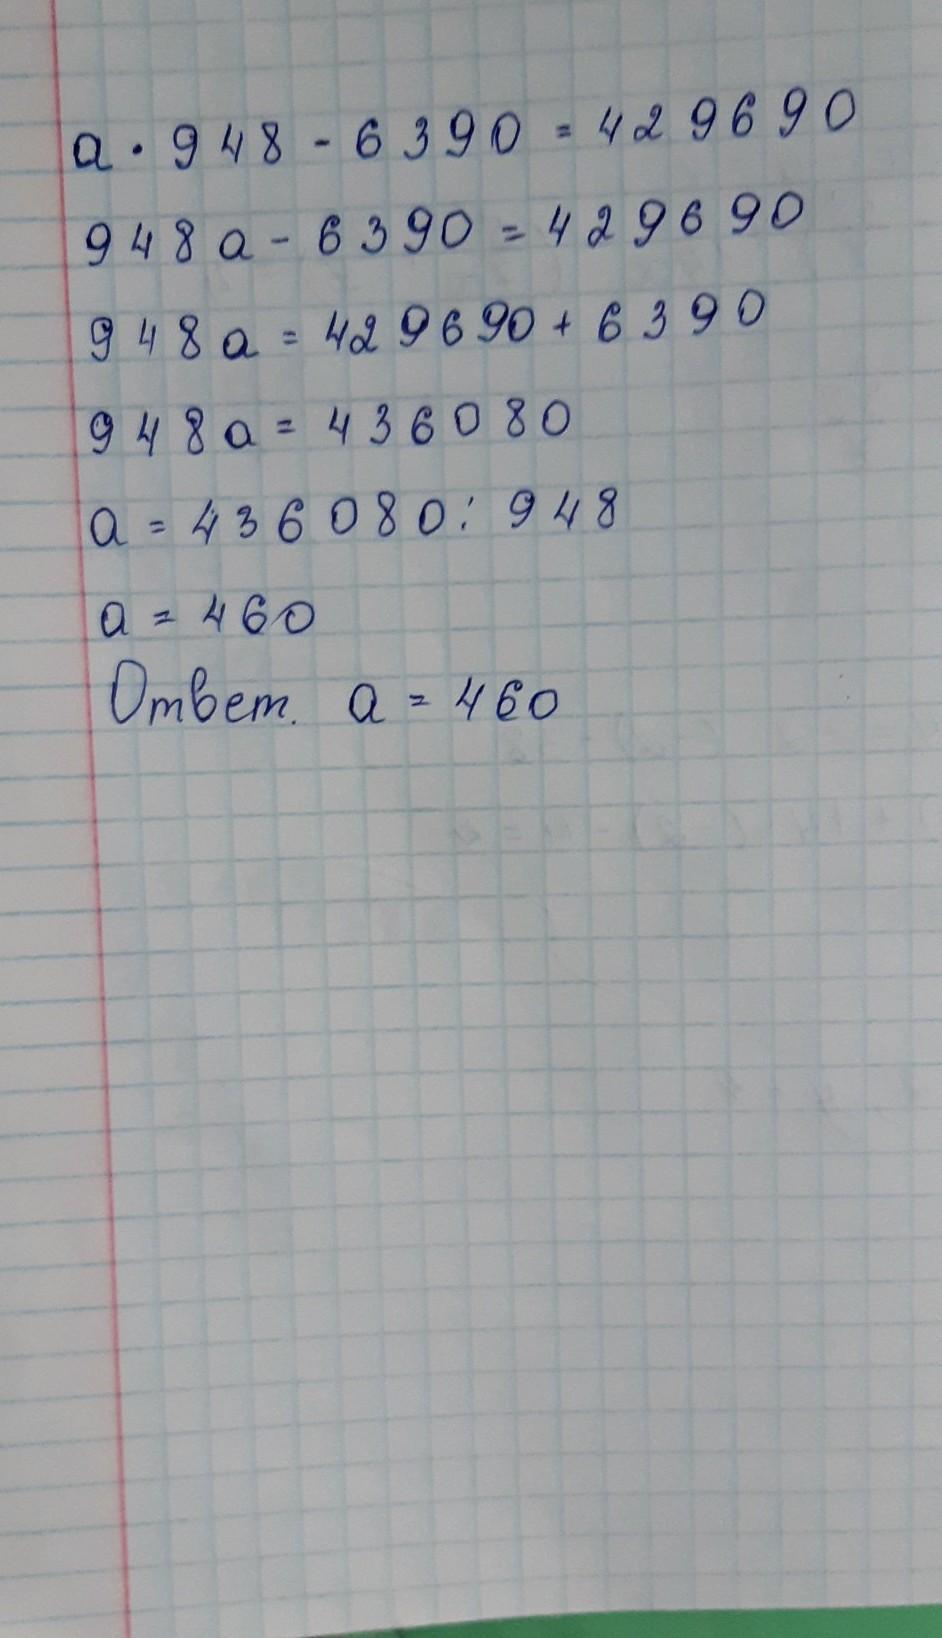 a · 948 - 6390 = 429690
948a - 6390 = 429690
948a = 429690 + 6390
948a = 436080
a = 436080 : 948
a = 460
Ответ. a = 460